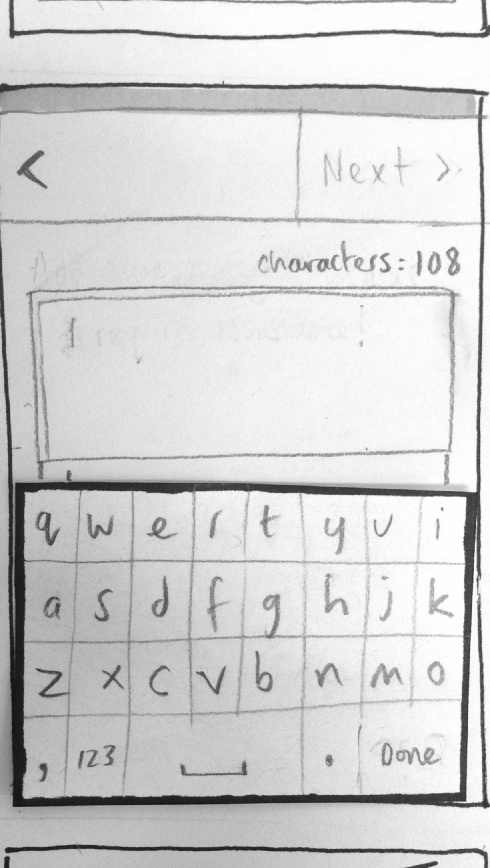 < Next >
characters: 108
q w e r t y u i
a s d f g h j k
z x c v b n m o
, 123 . Done